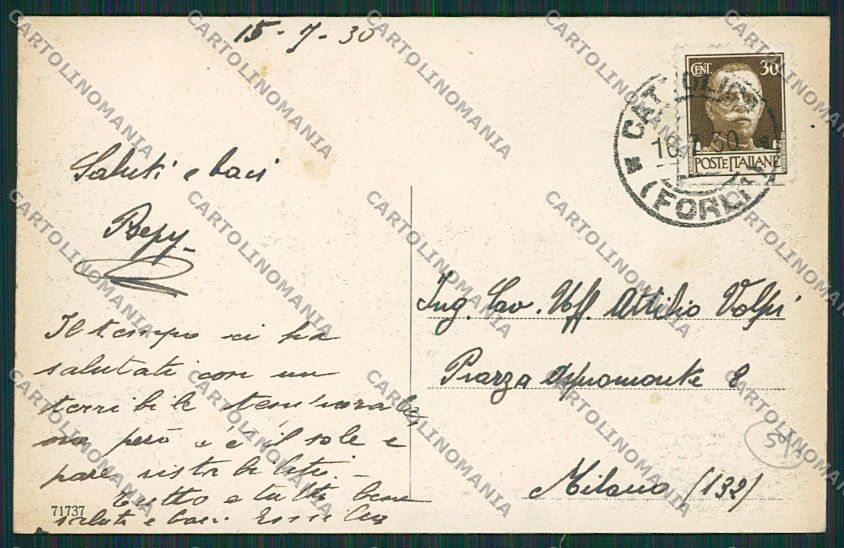 15-7-30
Saluti e baci
Bepy
Il tempo ci ha
salutati con un
terribile temporale,
ora però c'è il sole e
pare ristabiliti -
Tutto e tutti bene
saluti e baci
71737
CENT. 30
POSTE ITALIANE
CATTOLICA
16.7.30
(FORLI)
Ing. Cav. Uff. Attilio Volpi
Piazza Aspromonte 8
Milano (132)
CARTOLINOMANIA